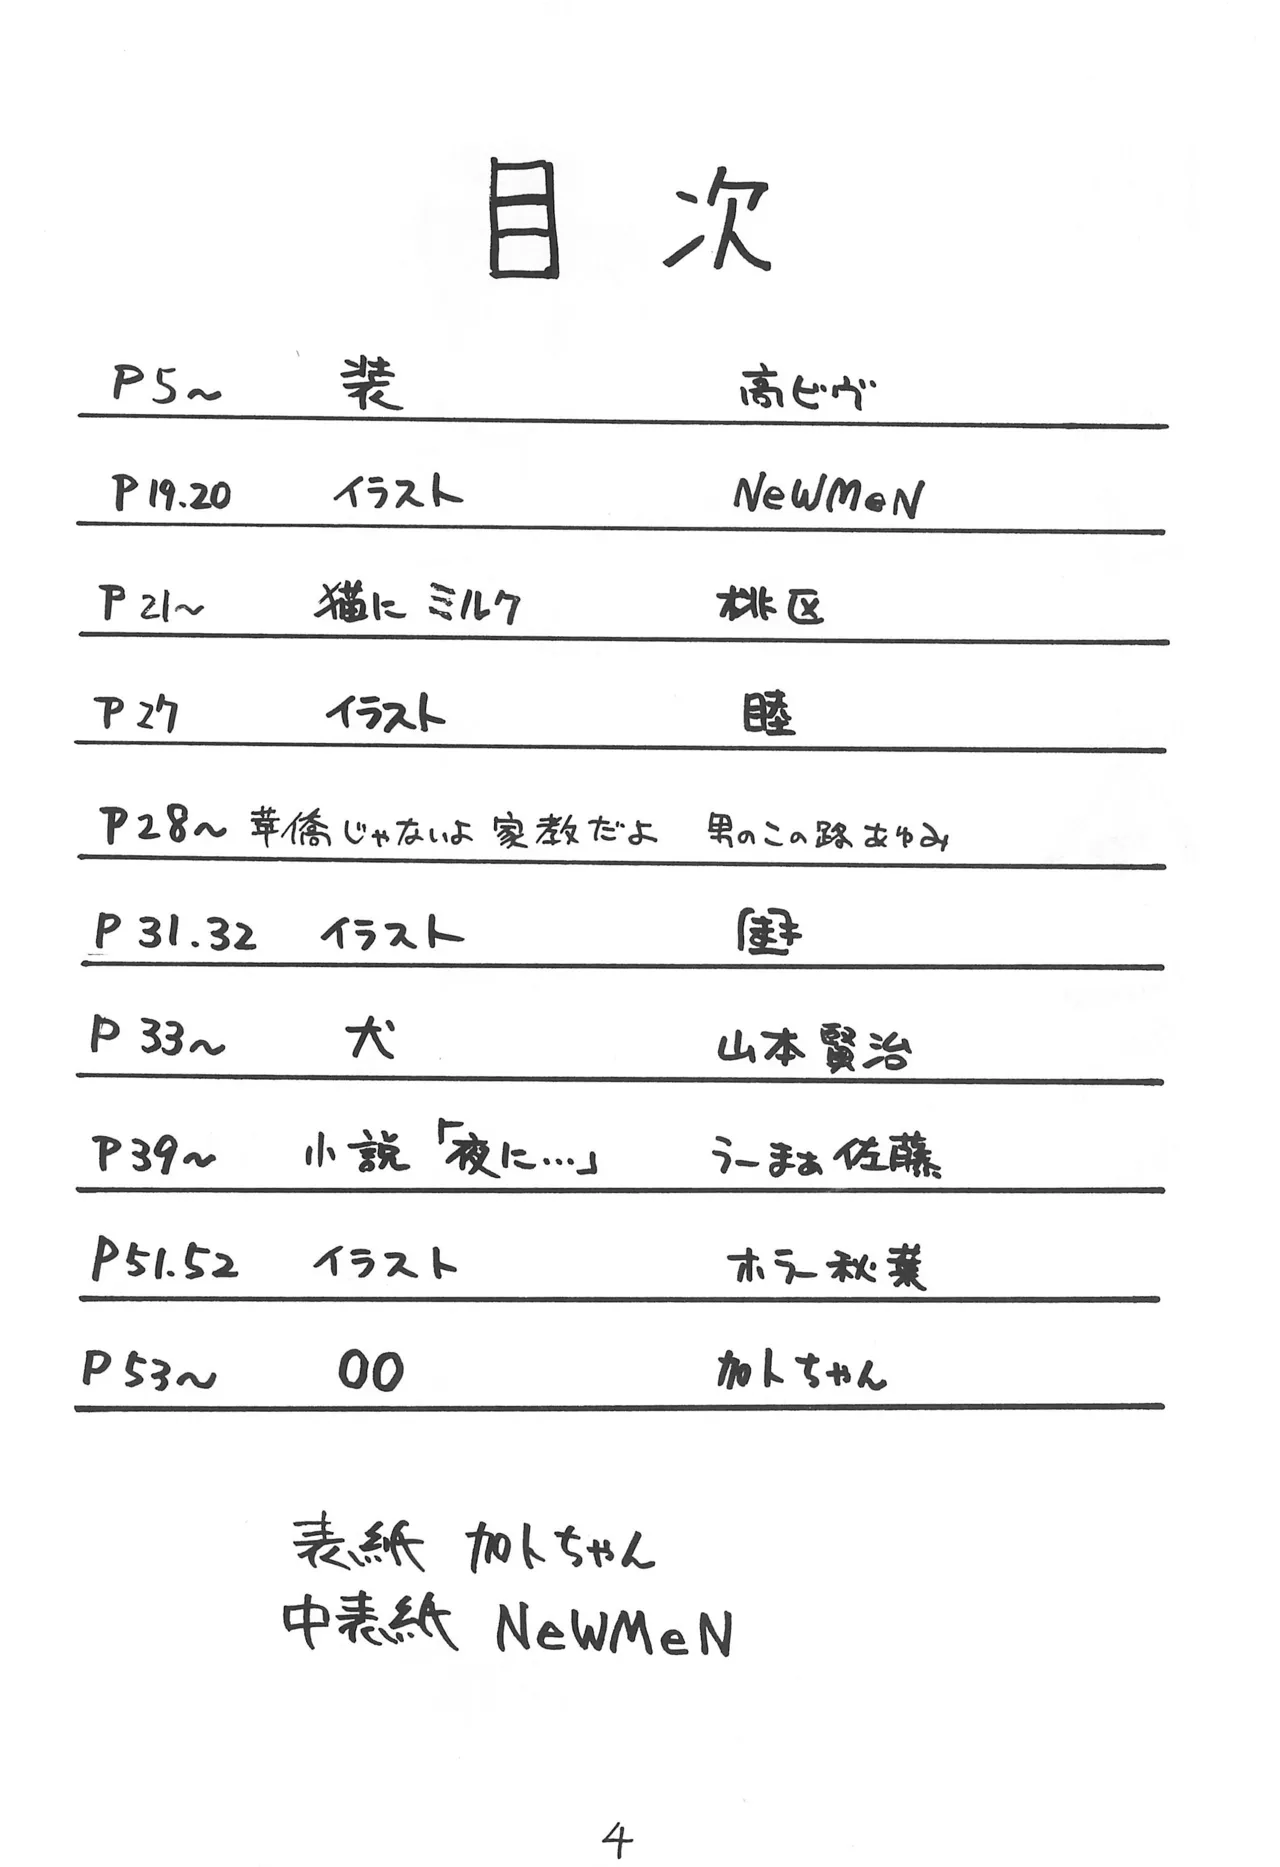 目次
P5～ 装 高ビヴ
P19.20 イラスト NeWMeN
P21～ 猫にミルク 桃区
P27 イラスト 睦
P28～ 華僑じゃないよ家教だよ 男のこの路あゆみ
P31.32 イラスト
P33～ 犬 山本賢治
P39～ 小説「夜に…」 うーまぁ佐藤
P51.52 イラスト ホラー秋葉
P53～ OO 加トちゃん
表紙 加トちゃん
中表紙 NeWMeN
4